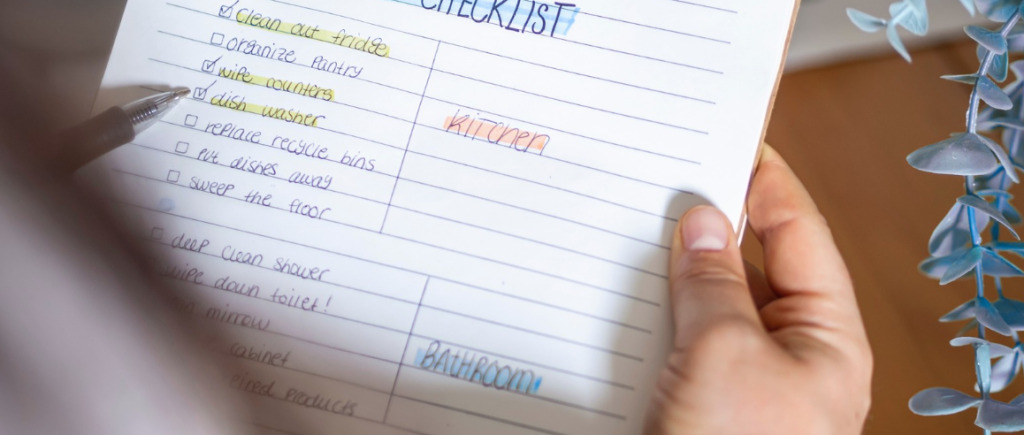 CHECKLIST
clean out fridge
organize pantry
wipe counters
dish washer
replace recycle bins
put dishes away
sweep the floor
kitchen
deep clean shower
wipe down toilet!
mirrow
cabinet
products
BATHROOM